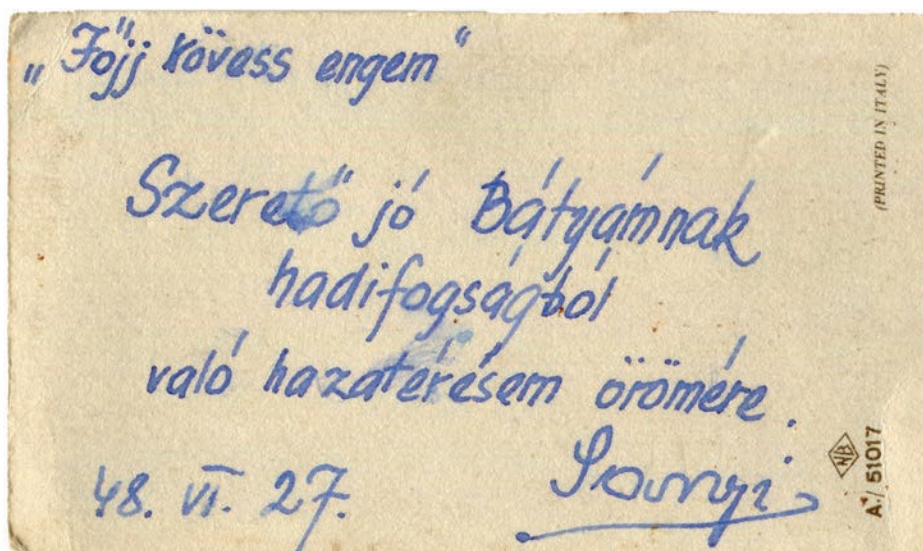 „Jőjj kövess engem"
Szerető jó Bátyámnak
hadifogságból
való hazatérésem örömére.
48. VI. 27.
Sanyi
(PRINTED IN ITALY)
NB
A./ 51017